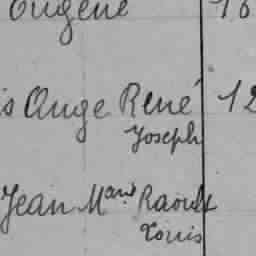 Eugène 16
is Ange René 12
Joseph
Jean Marie Raoult
Louis